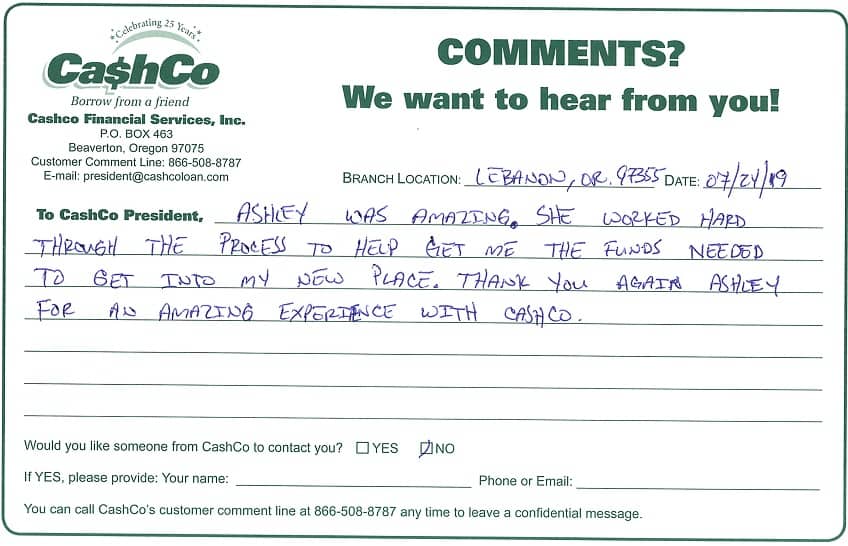 Celebrating 25 Years
Ca$hCo
Borrow from a friend
Cashco Financial Services, Inc.
P.O. BOX 463
Beaverton, Oregon 97075
Customer Comment Line: 866-508-8787
E-mail: president@cashcoloan.com
COMMENTS?
We want to hear from you!
BRANCH LOCATION: LEBANON, OR. 97355 DATE: 07/24/19
To CashCo President, ASHLEY WAS AMAZING. SHE WORKED HARD
THROUGH THE PROCESS TO HELP GET ME THE FUNDS NEEDED
TO GET INTO MY NEW PLACE. THANK YOU AGAIN ASHLEY
FOR AN AMAZING EXPERIENCE WITH CASHCO.
Would you like someone from CashCo to contact you? YES NO
If YES, please provide: Your name: Phone or Email:
You can call CashCo's customer comment line at 866-508-8787 any time to leave a confidential message.